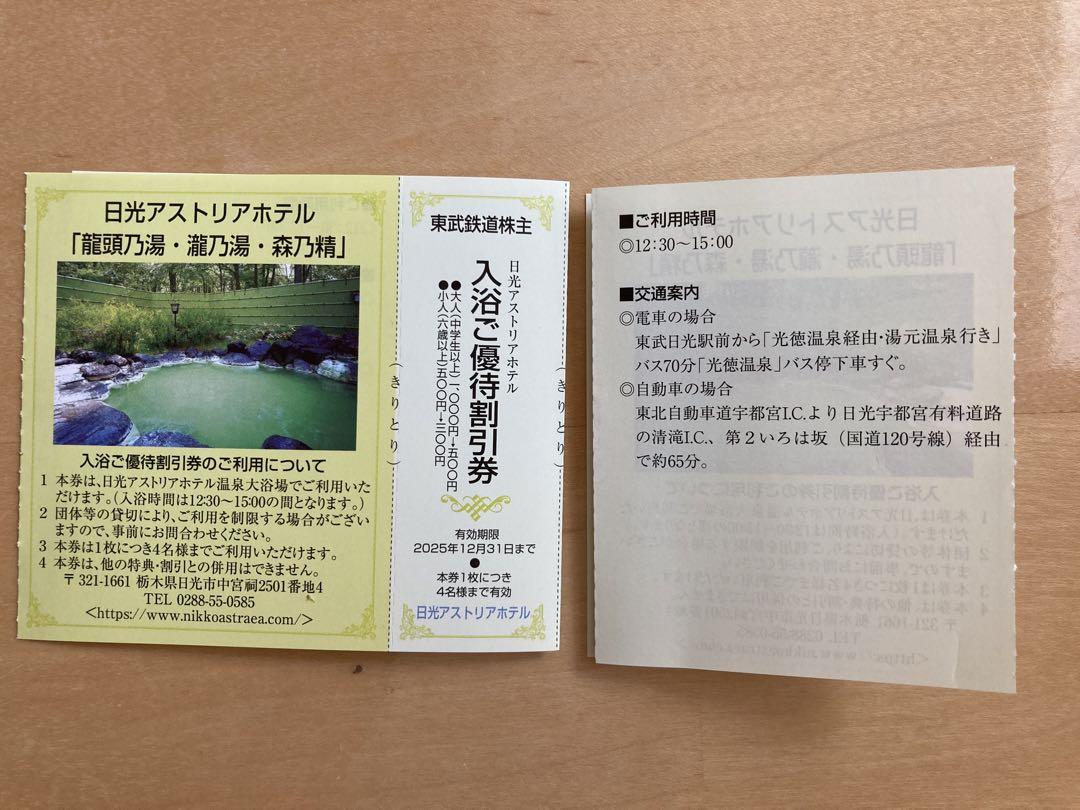 日光アストリアホテル
「龍頭乃湯・瀧乃湯・森乃精」
入浴ご優待割引券のご利用について
1 本券は、日光アストリアホテル温泉大浴場でご利用いた
だけます。(入浴時間は12:30〜15:00の間となります。)
2 団体等の貸切により、ご利用を制限する場合がござい
ますので、事前にお問合わせください。
3 本券は1枚につき4名様までご利用いただけます。
4 本券は、他の特典・割引との併用はできません。
〒321-1661 栃木県日光市中宮祠2501番地4
TEL 0288-55-0585
<https://www.nikkoastraea.com/>
(きりとり)
東武鉄道株主
日光アストリアホテル
入浴ご優待割引券
●大人(中学生以上)一、〇〇〇円→五〇〇円
●小人(六歳以上)五〇〇円→三〇〇円
有効期限
2025年12月31日まで
●
本券1枚につき
4名様まで有効
日光アストリアホテル
(きりとり)
■ご利用時間
◎12:30〜15:00
■交通案内
◎電車の場合
東武日光駅前から「光徳温泉経由・湯元温泉行き」
バス70分「光徳温泉」バス停下車すぐ。
◎自動車の場合
東北自動車道宇都宮I.C.より日光宇都宮有料道路
の清滝I.C.、第2いろは坂(国道120号線)経由
で約65分。